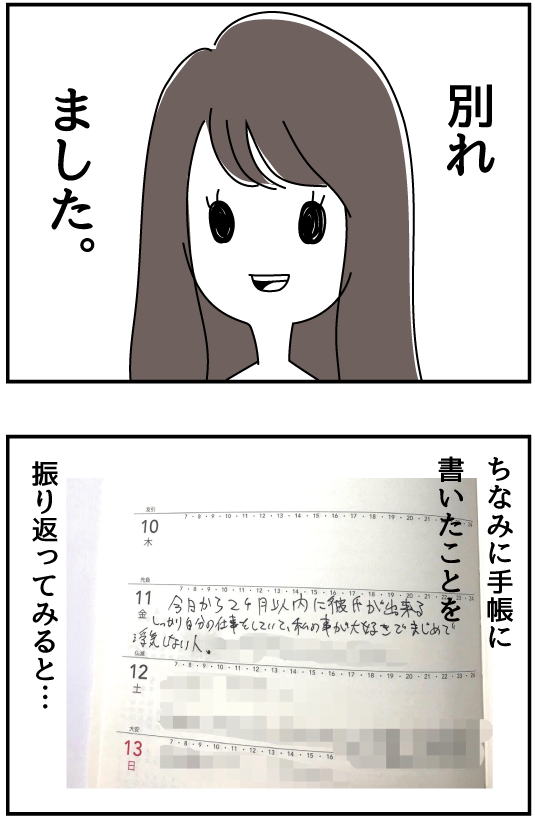 別れ
ました。
ちなみに手帳に
書いたことを
振り返ってみると…
友引
10
木
7・8・9・10・11・12・13・14・15・16・17・18・19・20・21・22・23・24
先負
11
金
7・8・9・10・11・12・13・14・15・16・17・18・19・20・21・22・23・24
今日から2ヶ月以内に彼氏が出来る
しっかり自分の仕事をしていて、私の事が大好きでまじめで
浮気しない人。
仏滅
12
土
7・8・9・10・11・12・13・14・15・16・17・18・19・20・21・22・23・24
大安
13
日
7・8・9・10・11・12・13・14・15・16